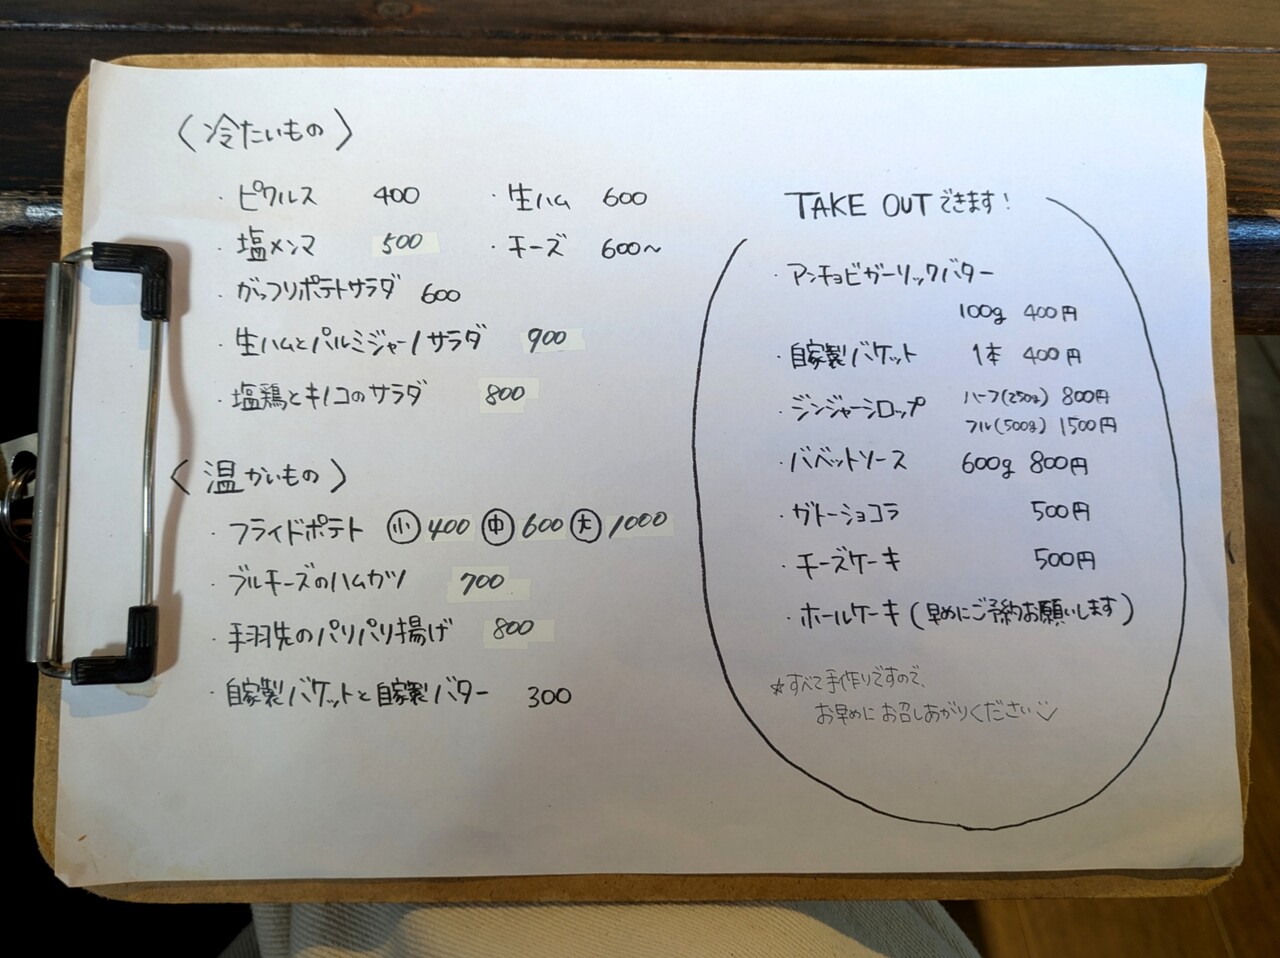 〈冷たいもの〉
・ピクルス 400 ・生ハム 600
・塩メンマ 500 ・チーズ 600〜
・がっつりポテトサラダ 600
・生ハムとパルミジャーノサラダ 900
・塩鶏とキノコのサラダ 800
〈温かいもの〉
・フライドポテト ㊥小 400 ㊥ 600 大 1000
・ブルーチーズのハムカツ 700
・手羽先のパリパリ揚げ 800
・自家製バケットと自家製バター 300
TAKE OUTできます!
・アンチョビガーリックバター
100g 400円
・自家製バケット 1本 400円
・ジンジャーシロップ ハーフ(250g) 800円
フル(500g) 1500円
・バベットソース 600g 800円
・ガトーショコラ 500円
・チーズケーキ 500円
・ホールケーキ(早めにご予約お願いします)
☆すべて手作りですので、
お早めにお召しあがりください